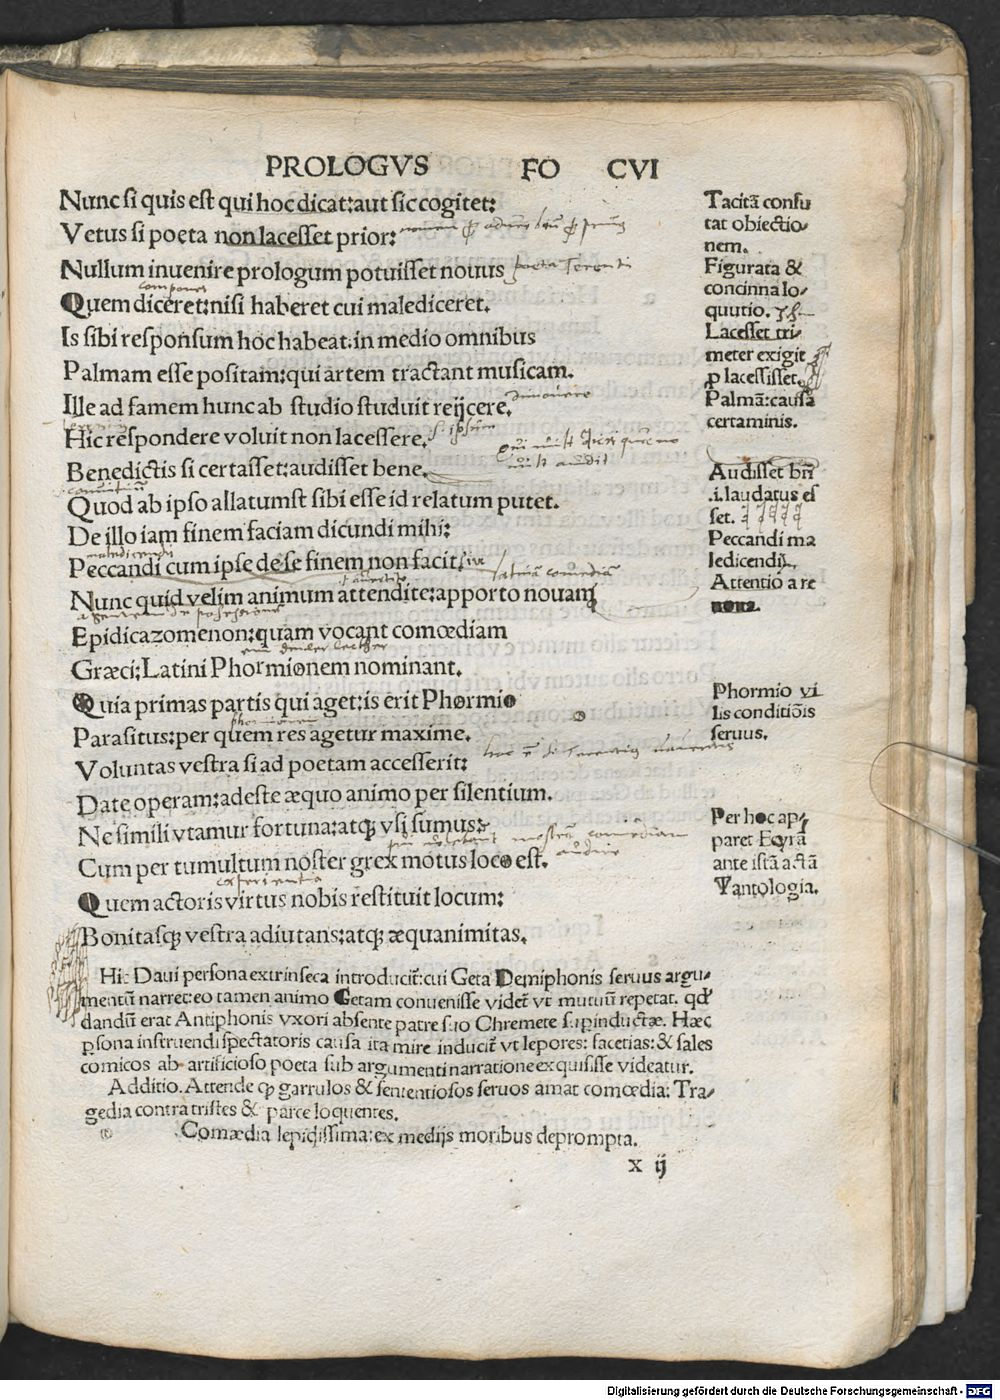 PROLOGVS FO CVI
Nunc si quis est qui hoc dicat: aut sic cogitet:
Vetus si poeta non lacesset prior:
Nullum inuenire prologum potuisset nouus
poeta Terenti
Quem diceret: nisi haberet cui malediceret.
Is sibi responsum hoc habeat: in medio omnibus
Palmam esse positam: qui artem tractant musicam.
Ille ad famem hunc ab studio studuit reijcere.
Hic respondere voluit non lacessere.
Benedictis si certasset: audisset bene.
Quod ab ipso allatumst sibi esse id relatum putet.
De illo iam finem faciam dicundi mihi:
maledicendi
Peccandi cum ipse de se finem non facit.
latinā comediā
Nunc quid velim animum attendite: apporto nouam
Epidicazomenon: quam vocant comœdiam
Græci: Latini Phormionem nominant.
Quia primas partis qui aget: is erit Phormio
phormionem
Parasitus: per quem res agetur maxime.
Voluntas vestra si ad poetam accesserit:
Date operam: adeste æquo animo per silentium.
Ne simili vtamur fortuna: atqꝫ vsi sumus:
Cum per tumultum noster grex motus loco est.
Quem actoris virtus nobis restituit locum:
Bonitasqꝫ vestra adiutans: atqꝫ æquanimitas.
Tacitā confu
tat obiectio-
nem.
Figurata &
concinna lo-
quutio.
Lacesset tri-
meter exigit
ꝓ lacessisset.
Palmā: causa
certaminis.
Audisset bñ
.i. laudatus es
set.
Peccandi ma
ledicendi,
Attentio a re
noua.
Phormio vi
lis conditiōis
seruus.
Per hoc ap-
paret Ecyrā
ante istā actā
Tantologia.
Hic Daui persona extrinseca introducit̃: cui Geta Demiphonis seruus argu-
mentū narret: eo tamen animo Getam conuenisse videt̃ vt mutuū repetat. qđ
dandū erat Antiphonis vxori absente patre suo Chremete superinductæ. Hæc
ꝑsona instruendi spectatoris causa ita mire inducit̃ vt lepores: facetias: & sales
comicos ab artificioso poeta sub argumenti narratione exquisisse videatur.
Additio. Attende ꝙ garrulos & sententiosos seruos amat comœdia: Tra-
gedia contra tristes & parce loquentes.
Comædia lepidissima: ex medijs moribus deprompta.
x ij
Digitalisierung gefördert durch die Deutsche Forschungsgemeinschaft - DFG